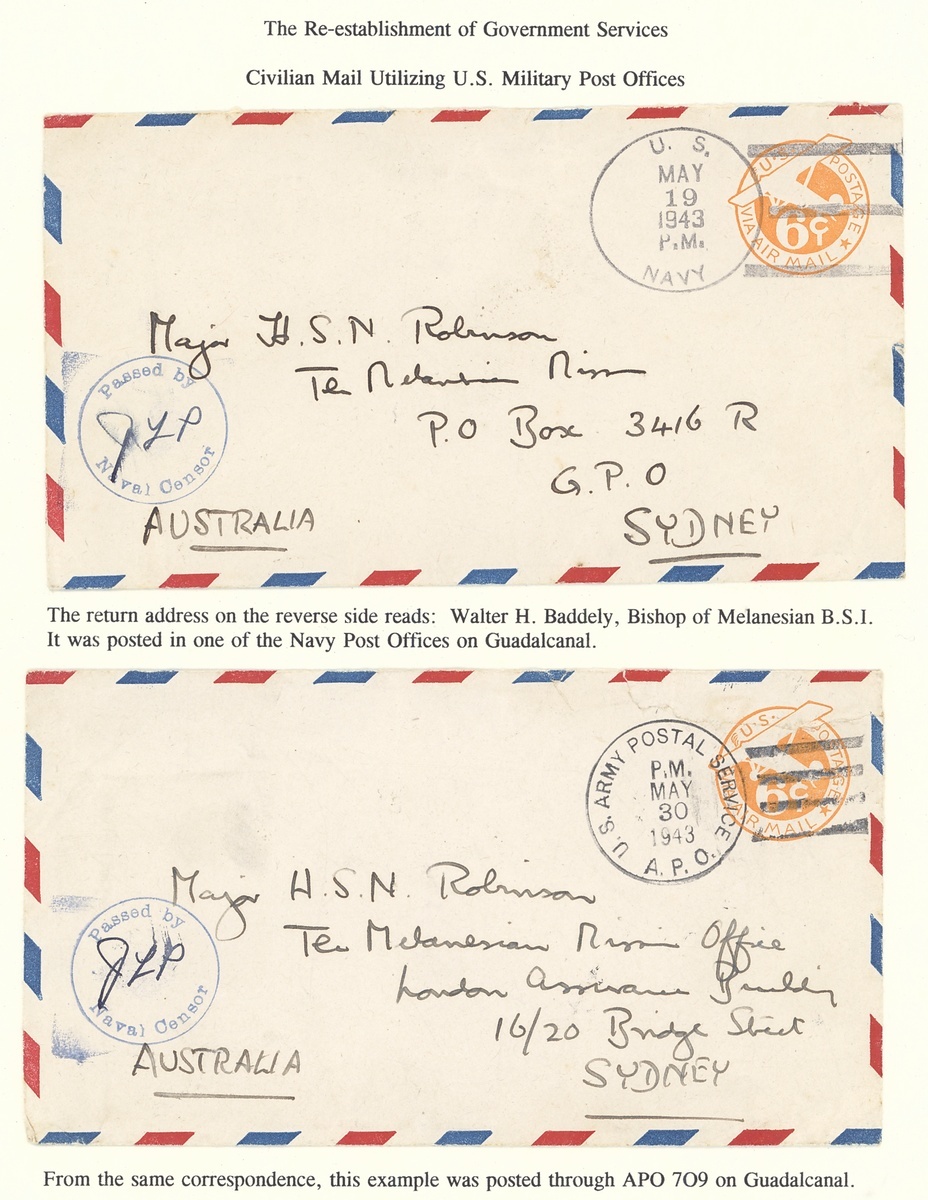 The Re-establishment of Government Services
Civilian Mail Utilizing U.S. Military Post Offices
U. S.
MAY
19
1943
P.M.
NAVY
U.S. POSTAGE
6¢
VIA AIR MAIL
Major H.S.N. Robinson
The Melanesian Mission
P.O Box 3416 R
G.P.O
SYDNEY
AUSTRALIA
Passed by
JLP
Naval Censor
The return address on the reverse side reads: Walter H. Baddely, Bishop of Melanesian B.S.I.
It was posted in one of the Navy Post Offices on Guadalcanal.
U.S. ARMY POSTAL SERVICE
P.M.
MAY
30
1943
A.P.O.
U.S. POSTAGE
6¢
AIR MAIL
Major H.S.N. Robinson
The Melanesian Mission Office
London Assurance Building
16/20 Bridge Street
SYDNEY
AUSTRALIA
Passed by
JLP
Naval Censor
From the same correspondence, this example was posted through APO 7O9 on Guadalcanal.